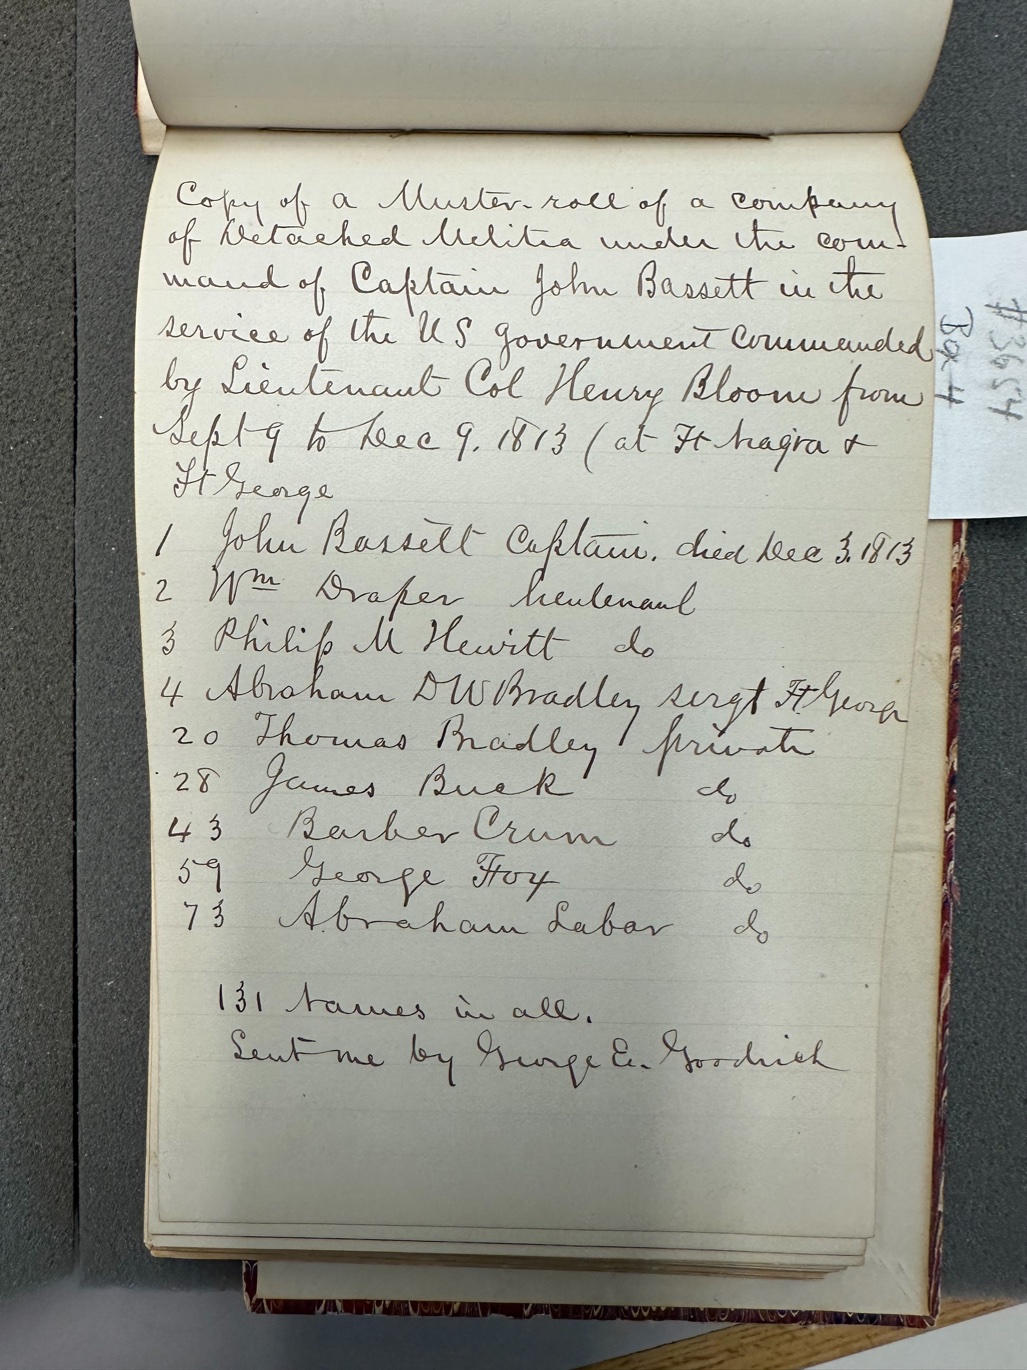 Copy of a Muster-roll of a company
of Detached Melitia under the com-
mand of Captain John Bassett in the
service of the US government commanded
by Lieutenant Col Henry Bloom from
Sept 9 to Dec 9. 1813 (at Ft Niagra &
Ft George
1 John Bassett Captain. died Dec 3. 1813
2 Wm Draper lieutenant
3 Philip M Hewitt do
4 Abraham D W Bradley sergt Ft George
20 Thomas Bradley private
28 James Buck do
43 Barber Crum do
59 George Fox do
73 Abraham Labar do
131 Names in all.
Sent me by George E. Goodrich
#3654
Box 4